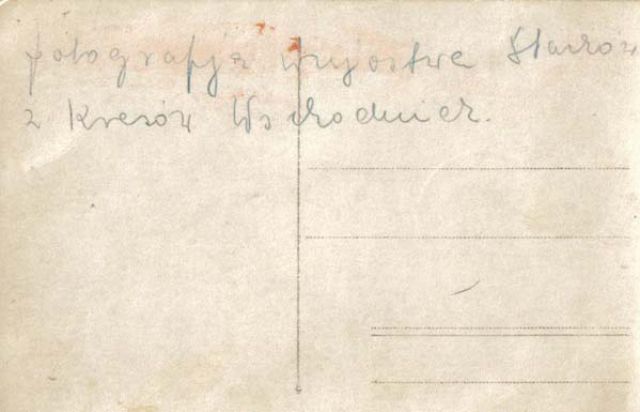 fotografja wujostwa
z Kresów Wschodnich.